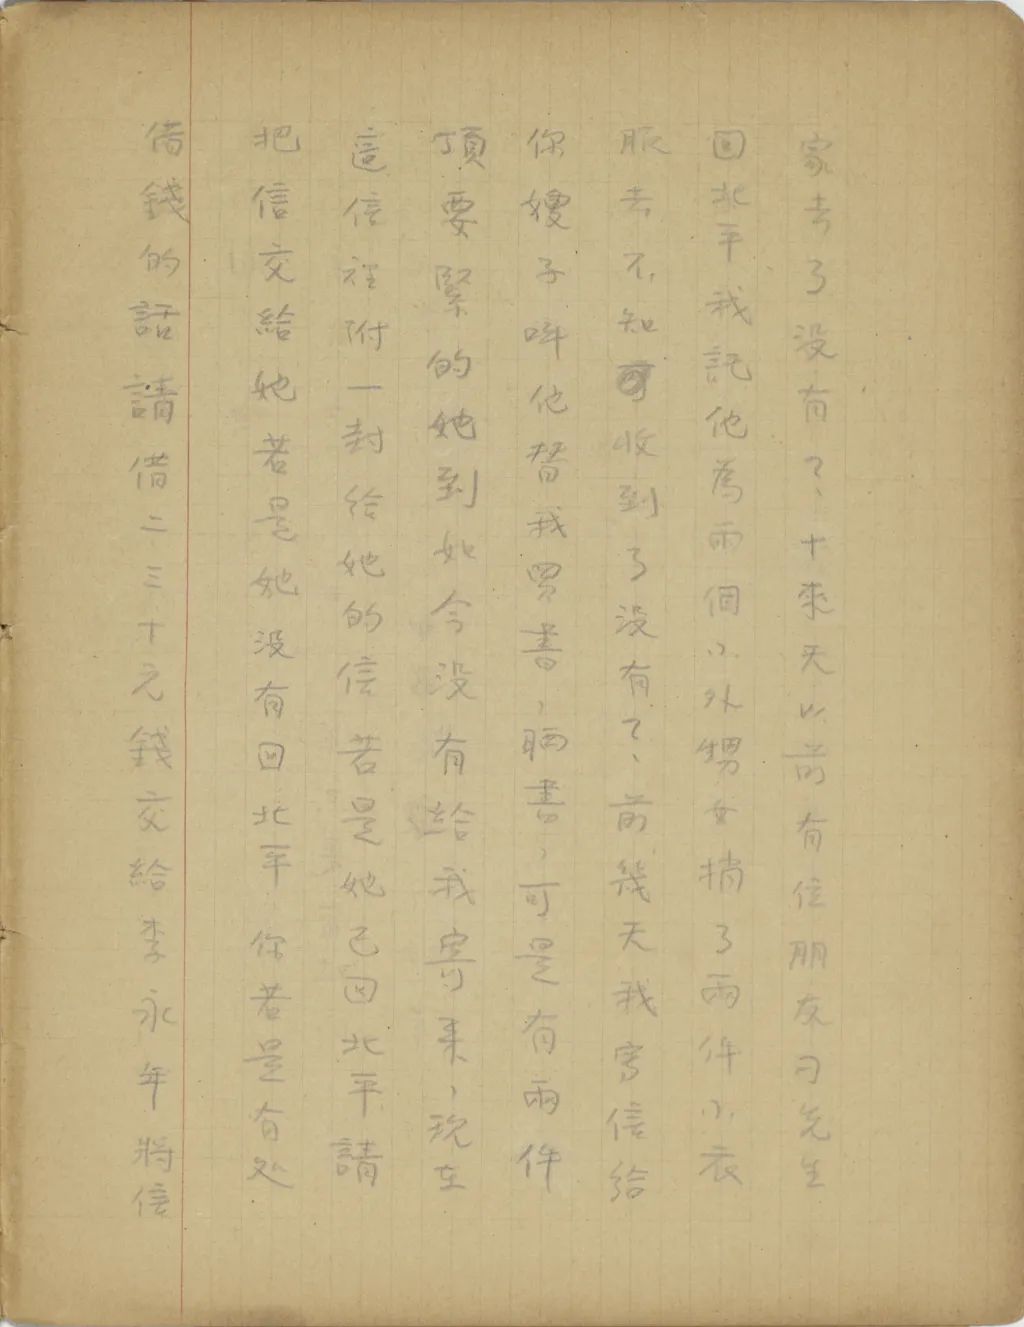 家去了没有？、十來天以前有位朋友刁先生
回北平我託他為兩個小外甥女捎了兩件小衣
服去不知可收到了没有？、前幾天我寫信給
你嫂子叫他替我買書，晒書，可是有兩件
頂要緊的她到如今没有給我寄来，现在
這信裡附一封给她的信若是她已回北平請
把信交給她若是她没有回北平你若是有处
借錢的話請借二三十元錢交給李永年將信